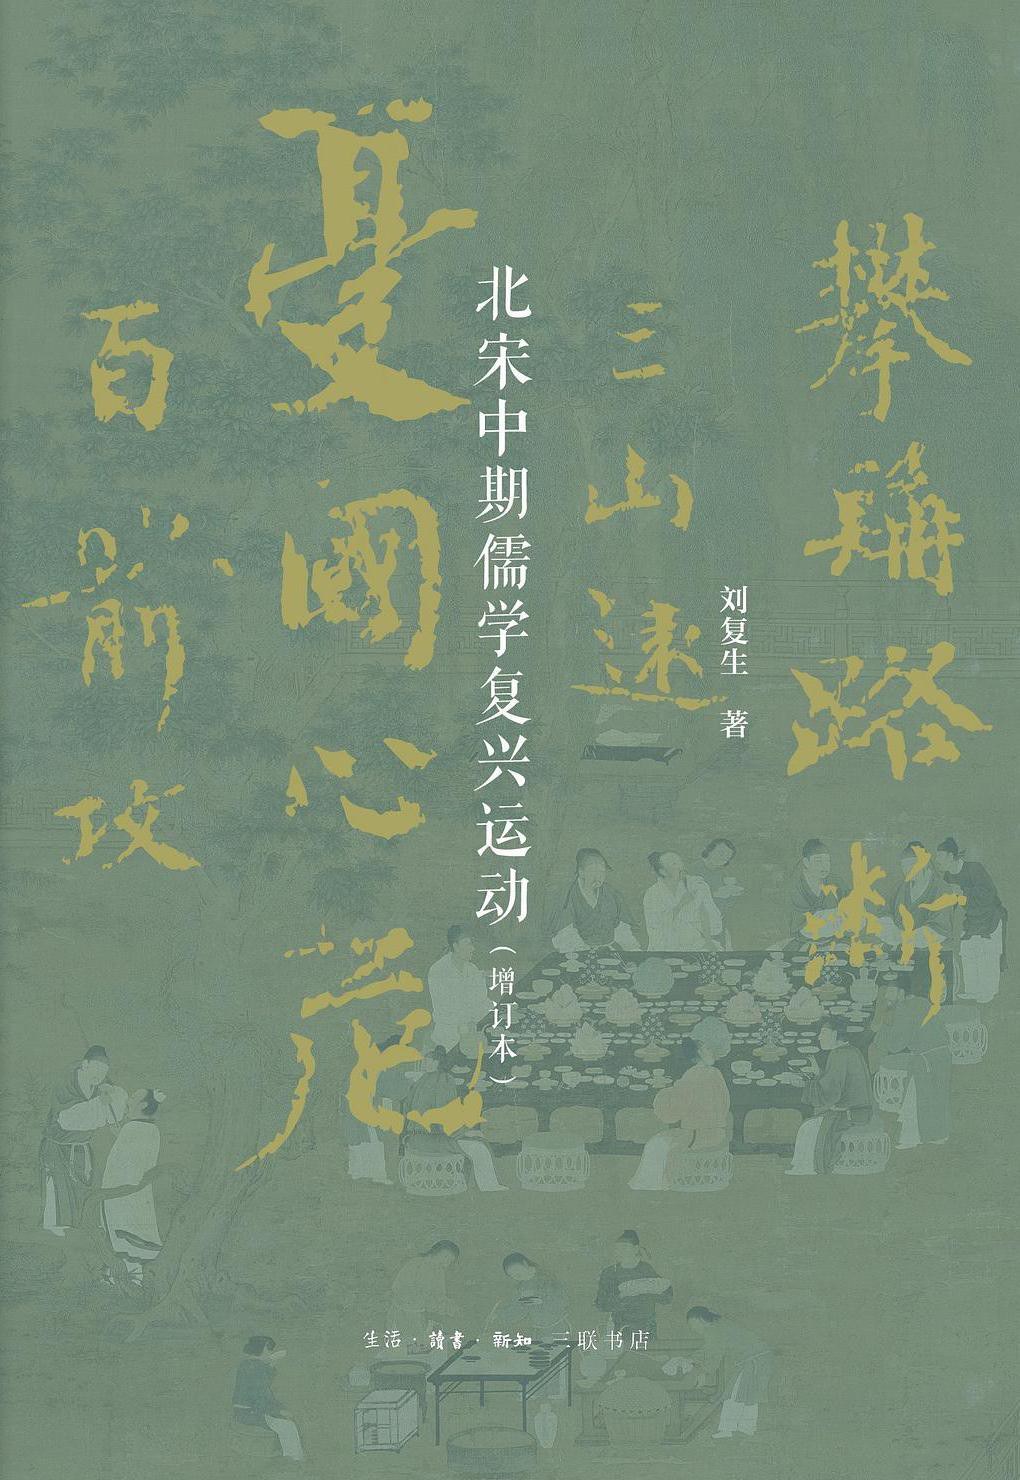 攀龍路斷
三山遠
憂國心危
百箭攻
北宋中期儒学复兴运动(增订本)
刘复生 著
生活·讀書·新知 三联书店